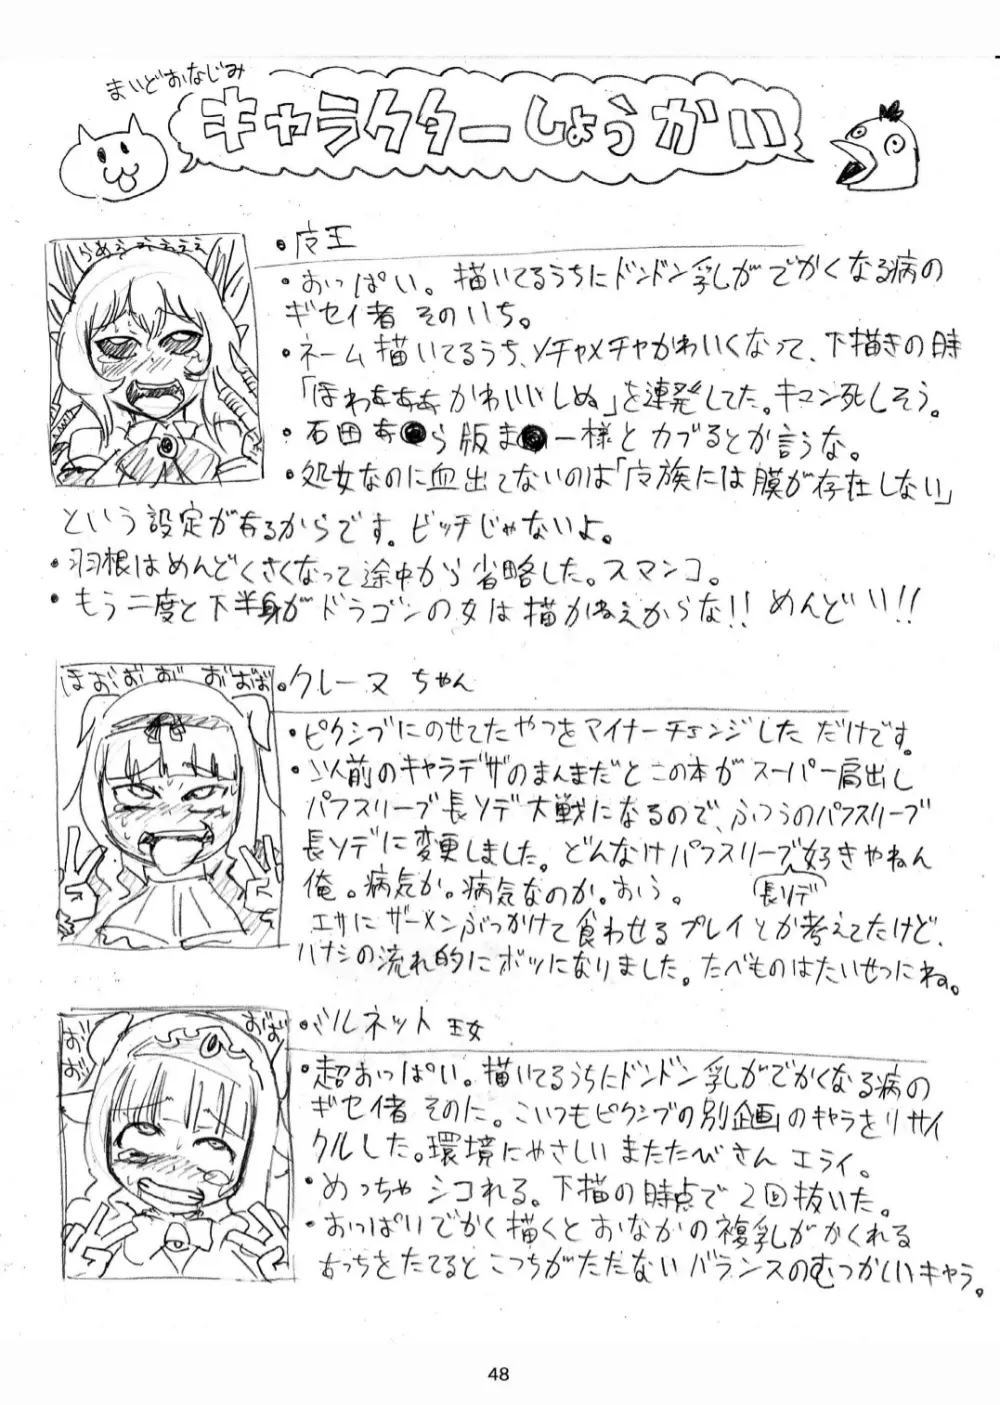 まいどおなじみ
キャラクターしょうかい
らめぇぇぇぇぇ
・皮王
・おっぱい。描いてるうちにドンドン乳がでかくなる病の
ギセイ者 そのいち。
・ネーム描いてるうち、メチャメチャかわいくなって、下描きの時
「ほわぁぁぁかわいいしぬ」を連発してた。キュン死しそう。
・石田あ●ら版ま●ー様とカブるとか言うな。
・処女なのに血出てないのは「皮族には膜が存在しない」
という設定があるからです。ビッチじゃないよ。
・羽根はめんどくさくなって途中から省略した。スマンコ。
・もう二度と下半身がドラゴンの女は描かねえからな!! めんどい!!
ほおおお おおば
・クレーヌ ちゃん
・ピクシブにのせてたやつをマイナーチェンジしただけです。
・以前のキャラデザのまんまだとこの本がスーパー肩出し
パフスリーブ長ソデ大戦になるので、ふつうのパフスリーブ
長ソデに変更しました。どんなけパフスリーブ好きやねん
長ソデ
俺。病気か。病気なのか。おう。
エサにザーメンぶっかけて食わせるプレイとか考えてたけど、
ハナシの流れ的にボツになりました。たべものはたいせつにね。
おお おば
・バルネット 王女
・超おっぱい。描いてるうちにドンドン乳がでかくなる病の
ギセイ者 そのに。こいつもピクシブの別企画のキャラをリサイ
クルした。環境にやさしい またたびさん エライ。
・めっちゃシコれる。下描の時点で2回抜いた。
・おっぱいでかく描くとおなかの複乳がかくれる
あっちをたてるとこっちがたたないバランスのむつかしいキャラ。
48